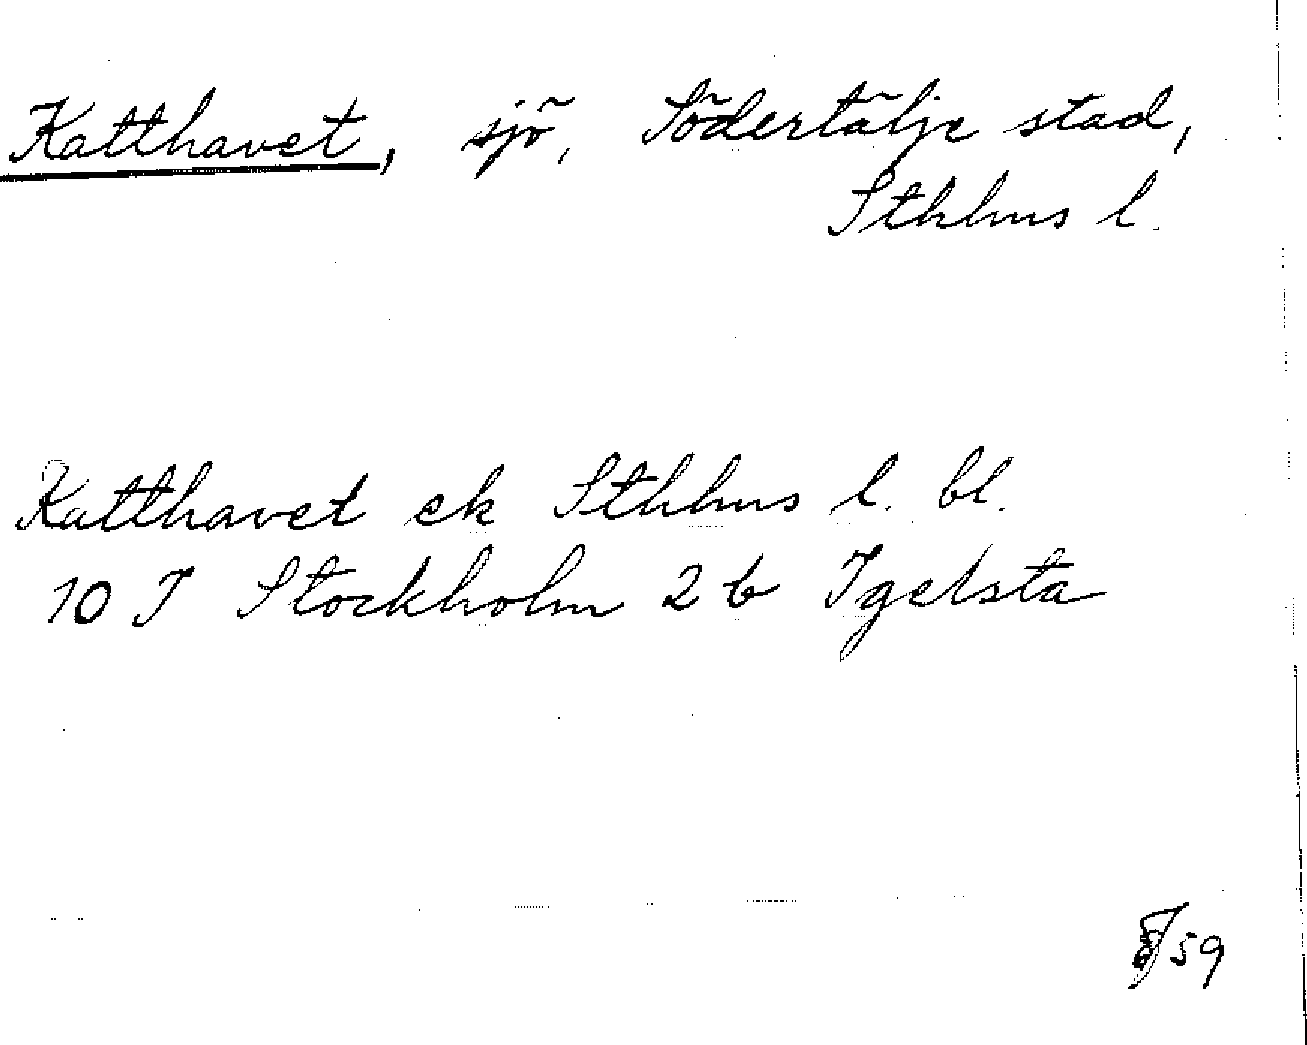 Katthavet, sjö, Södertälje stad,
Sthlms l.
Katthavet ek Sthlms l. bl.
10 I Stockholm 2 b Igelsta
59